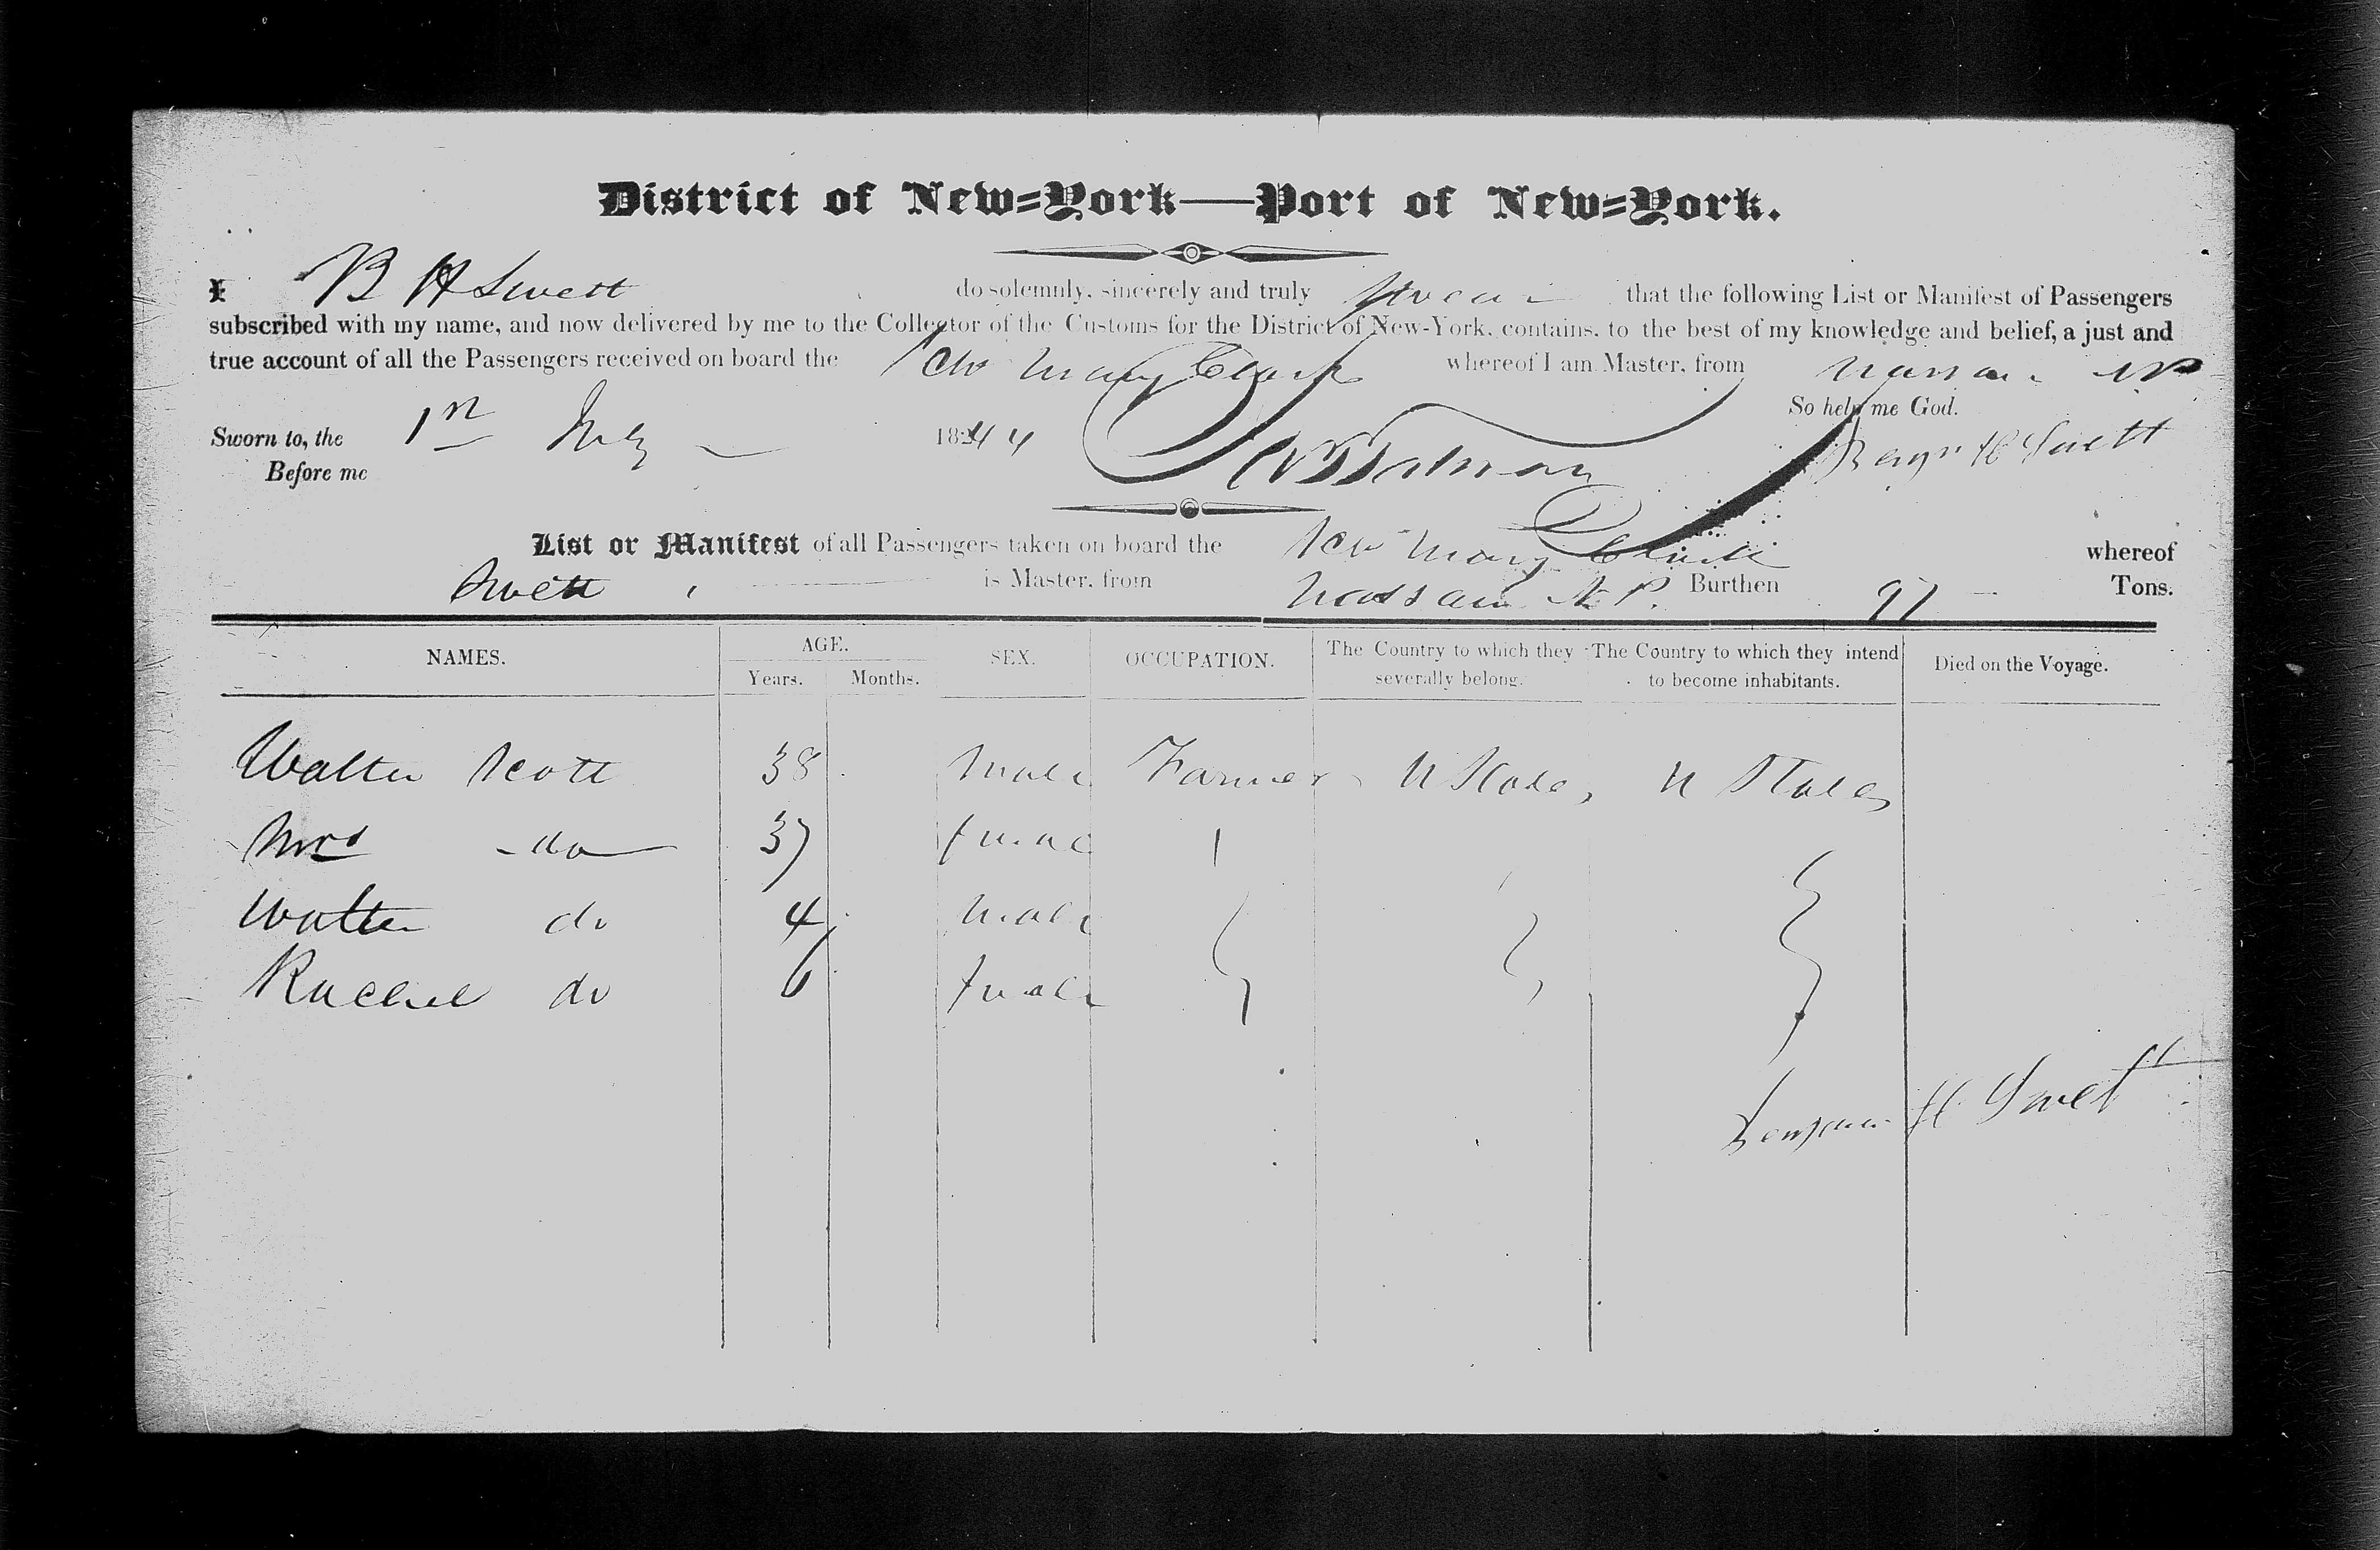 District of New=York—Port of New=York.
I B H Swett do solemnly, sincerely and truly swear that the following List or Manifest of Passengers
subscribed with my name, and now delivered by me to the Collector of the Customs for the District of New-York, contains, to the best of my knowledge and belief, a just and
true account of all the Passengers received on board the Schr Mary Clark whereof I am Master, from Nassau NP
So help me God.
Sworn to, the 1st July 1844 Benjn H Swett
Before me
List or Manifest of all Passengers taken on board the Schr Mary Clark whereof
Swett is Master, from Nassau N.P. Burthen 97 Tons.
NAMES. AGE. SEX. OCCUPATION. The Country to which they severally belong. The Country to which they intend to become inhabitants. Died on the Voyage.
Years. Months.
Walter Scott 38 Male Farmer U States U States
Mrs do 37 female
Walter do 4 Male
Rachel do 6 female
Benjamin H Swett